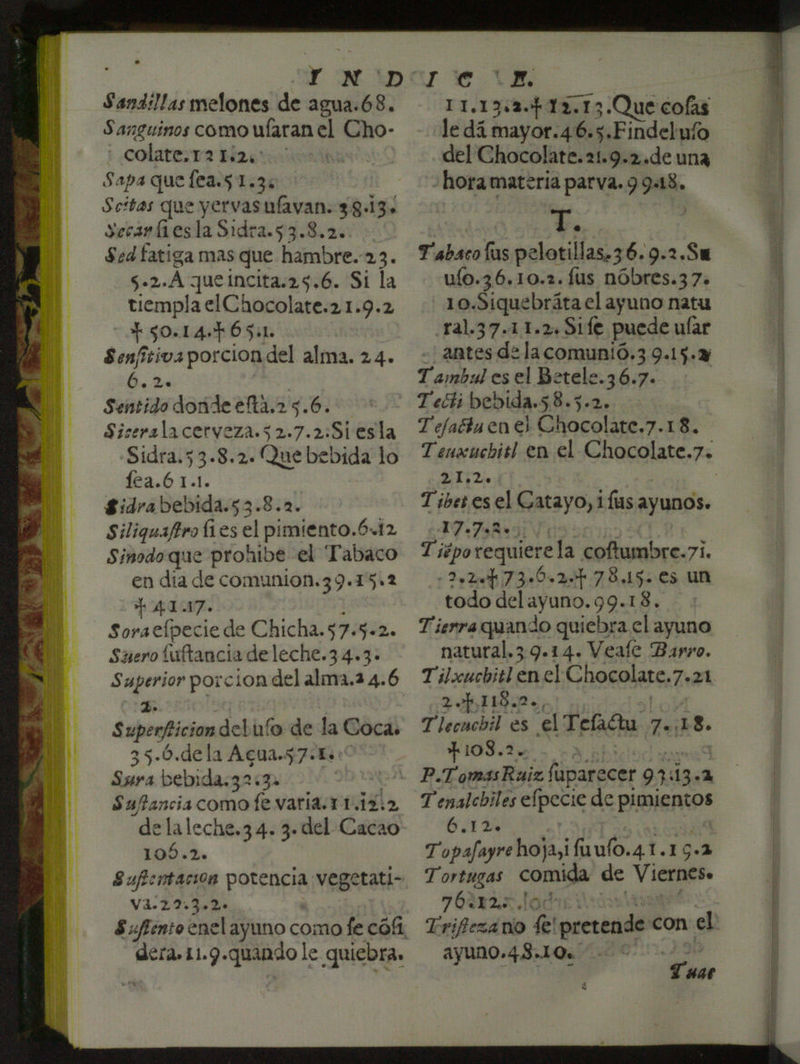 INDICE.
Sandillas melones de agua.68.
Sanguinos como uſaran el Cho-
colate.121.2.
Sapa que ſea.51.3.
Scitas que yervas uſavan. 38.13.
Secar ſi es la Sidra.53.8.2.
Sed fatiga mas que hambre. 23.
5.2.A que incita.25.6. Si la
tiempla el Chocolate.21.9.2
‡ 50.14.‡ 65.1.
Senſitiva porcion del alma. 24.
6.2.
Sentido donde eſtà.25.6.
Sizera la cerveza.52.7.2.Si es la
Sidra.53.8.2. Que bebida lo
ſea.61.1.
Sidra bebida.53.8.2.
Siliquaſtro ſi es el pimiento.6.12
Sinodo que prohibe el Tabaco
en dia de comunion.39.15.2
‡ 41.17.
Sora eſpecie de Chicha.57.5.2.
Suero ſuſtancia de leche.34.3.
Superior porcion del alma.24.6
2.
Superſticion del uſo de la Coca.
35.6.de la Açua.57.1.
Sura bebida.32.3.
Suſtancia como ſe varia.11.12.2
de la leche.34. 3. del Cacao
106.2.
Suſtentacion potencia vegetati-
va.29.3.2.
Suſtento en el ayuno como ſe cóſi
dera.11.9.quando le quiebra.
11.13.2.‡ 12.13.Que coſas
le dá mayor.46.5.Fin del uſo
del Chocolate.21.9.2.de una
hora materia parva.99.18.
T.
Tabaco ſus pelotillas.36.9.2.Su
uſo.36.10.2. ſus nóbres.37.
10.Si quebráta el ayuno natu
ral.37.11.2. Si ſe puede uſar
antes de la comunió.39.15.2
Tambul es el Betele.36.7.
Tecti bebida.58.5.2.
Teſactu en el Chocolate.7.18.
Teuxuchitl en el Chocolate.7.
21.2.
Tibet es el Catayo, i ſus ayunos.
17.7.2.
Tiépo requiere la coſtumbre.71.
2.2.‡ 73.6.2.‡ 78.15. es un
todo del ayuno.99.18.
Tierra quando quiebra el ayuno
natural.39.14. Veaſe Barro.
Tilxuchitl en el Chocolate.7.21
2.‡.118.2.
Tlecuchil es el Teſactu 7.18.
‡ 108.2.
P.Tomas Ruiz ſu parecer 93.13.2
Tenalchiles eſpecie de pimientos
6.12.
Topaſayre hoja,i ſu uſo.41.15.2
Tortugas comida de Viernes.
76.12.
Triſteza no ſe pretende con el
ayuno.48.10.
Tuae